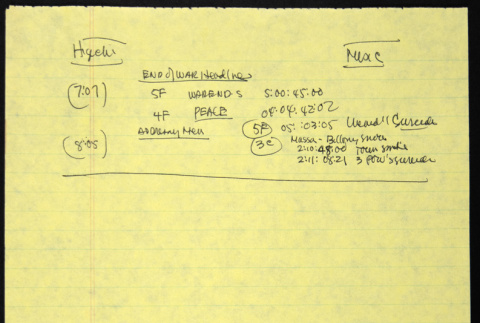 Higuchi Mac
END of WAR Headlines
(7:07) 5F WAR ENDS 5:00:45:00
4F PEACE 04:04:42:02
Academy Men 5F 05::03:05 Surrender
(8:05) 3C Massa - Bellony
2:10:48:00 Town
2:11:08:21 3 POW's surrender